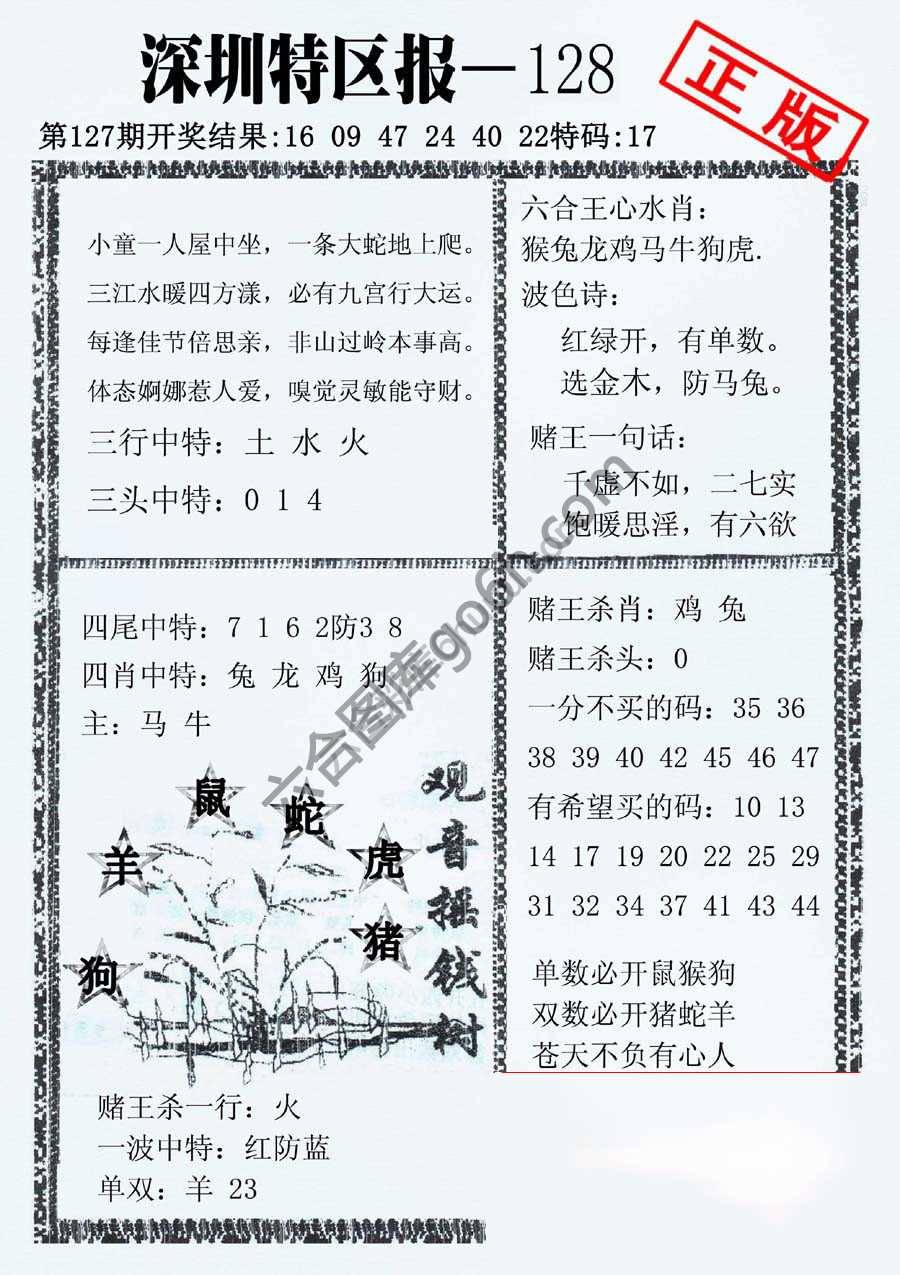 深圳特区报—128
正版
第127期开奖结果:16 09 47 24 40 22特码:17
小童一人屋中坐，一条大蛇地上爬。
三江水暖四方漾，必有九宫行大运。
每逢佳节倍思亲，非山过岭本事高。
体态婀娜惹人爱，嗅觉灵敏能守财。
三行中特：土 水 火
三头中特：0 1 4
六合王心水肖：
猴兔龙鸡马牛狗虎.
波色诗：
红绿开，有单数。
选金木，防马兔。
赌王一句话：
千虚不如，二七实
饱暖思淫，有六欲
四尾中特：7 1 6 2防3 8
四肖中特：兔 龙 鸡 狗
主：马 牛
鼠
蛇
羊
虎
猪
狗
观音摇钱树
赌王杀一行：火
一波中特：红防蓝
单双：羊 23
赌王杀肖：鸡 兔
赌王杀头：0
一分不买的码：35 36
38 39 40 42 45 46 47
有希望买的码：10 13
14 17 19 20 22 25 29
31 32 34 37 41 43 44
单数必开鼠猴狗
双数必开猪蛇羊
苍天不负有心人
六合图库go6h.com